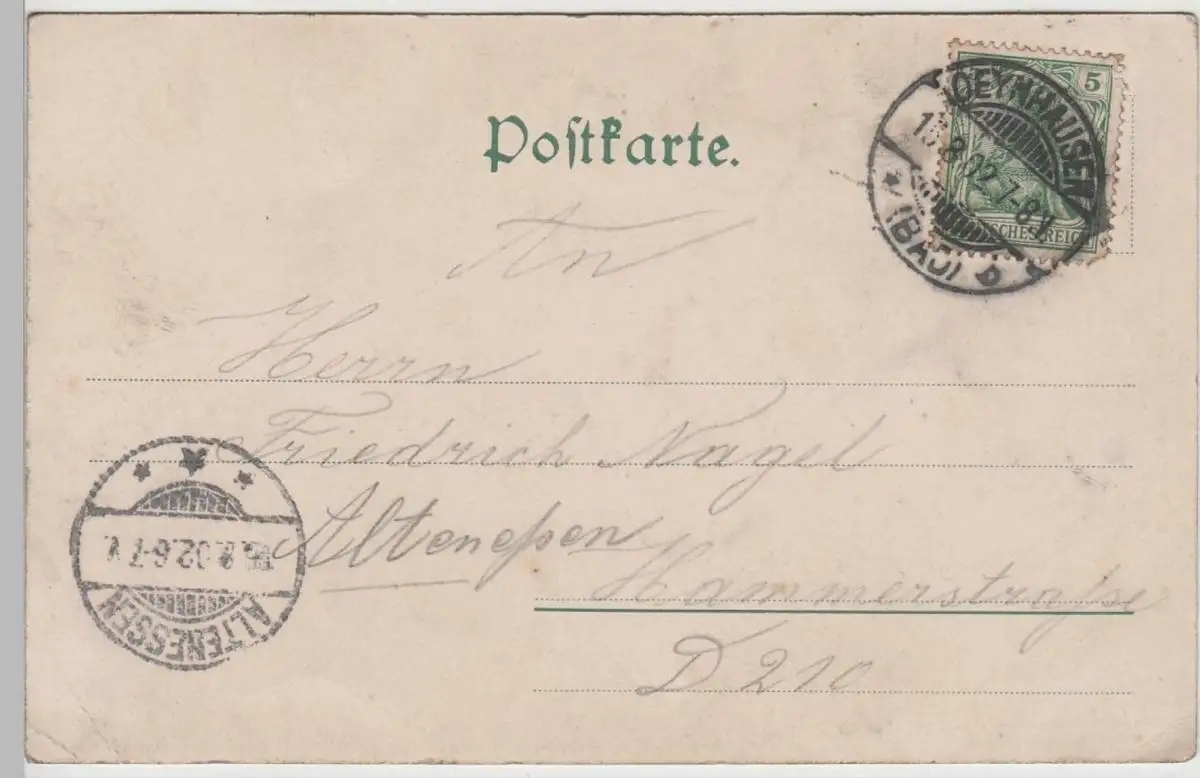 Postkarte.
5
OEYNHAUSEN
8.02.7-8V
* (BAD) b
DEUTSCHES REICH
An
Herrn
Friedrich Nagel
Altenessen
Hammerstraße
D 210
8.02.6-7 V.
ALTENESSEN